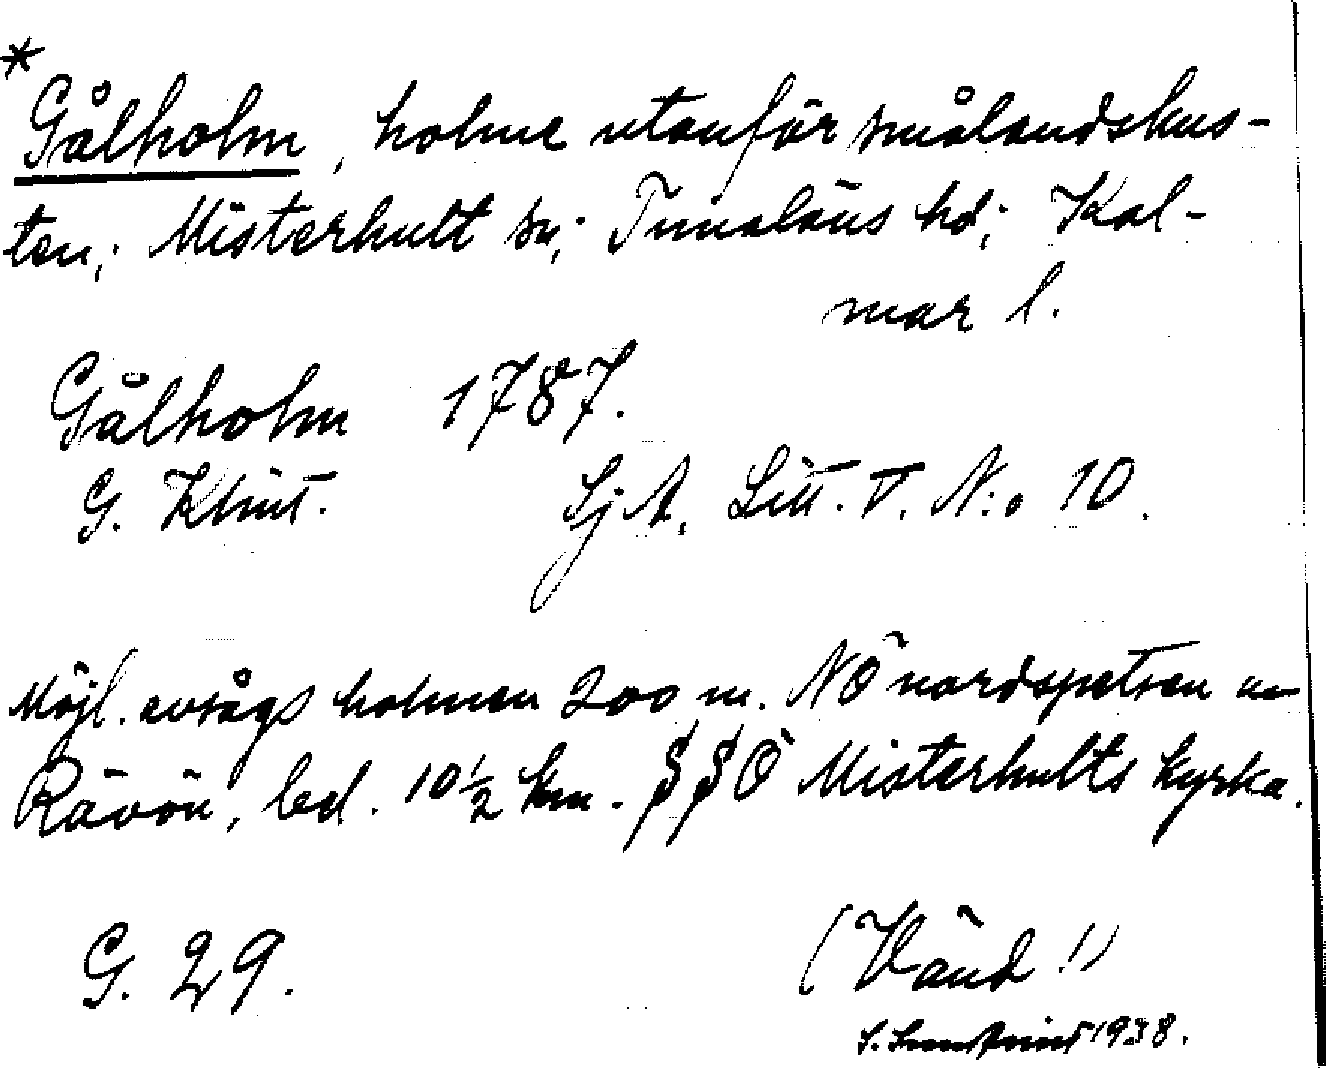 *
Gålholm, holme utanför smålandskus-
ten; Misterhult sn; Tunaläns hd; Kal-
mar l.
Gålholm 1787.
G. Klint. Sj A. Litt. V. N:o 10.
Möjl. avsågs holmen 200 m. NÖ nordspetsen av
Rävön, bel. 10½ km. SSÖ Misterhults kyrka.
G. 29. (Vänd!)
1938.